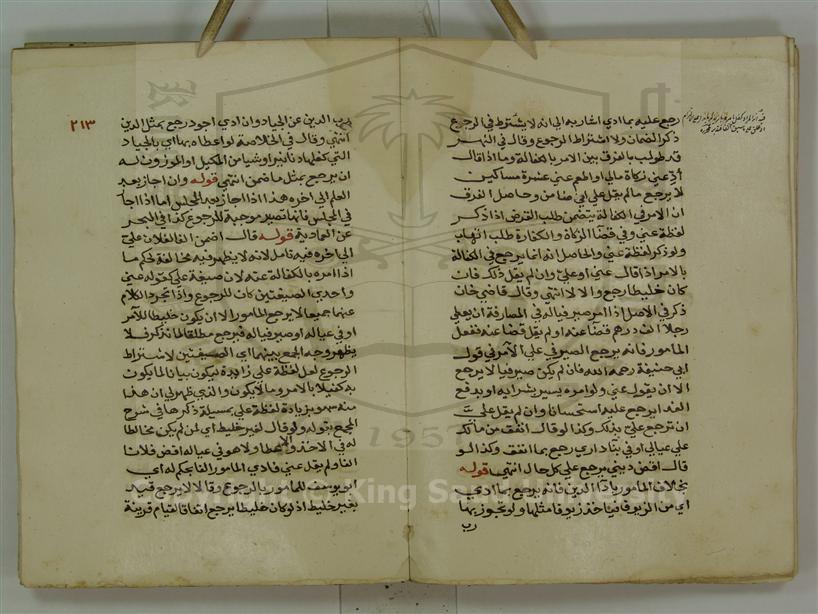 رجع عليه بما ادي اشار به الي انه لا يشترط في الرجوع
ذكر الضمان ولا اشتراط الرجوع وقال في النهر
قد طولب بالفرق بين الامر بالكفالة وما اذا قال
أدِّ عني زكاة مالي او اطعم عني عشرة مساكين
لا يرجع ما لم يقل علي اني ضامن وحاصل الفرق
ان الامر في الكفالة يتضمن طلب القرض اذا ذكر
لفظة عني وفي قضا الزكاة والكفارة طلب اتهاب
ولو ذكر لفظة عني والحاصل انه انما يرجع في الكفالة
بالامر اذا قال عني او علي وان لم يقل ذلك فان
كان خليطا رجع والا لا انتهي وقال قاضي خان
ذكر في الاصل اذا امر صيرفيا له في المصارفة ان يعطي
رجلا الف درهم قضا عنه او لم يقل قضا عنه ففعل
المامور فانه يرجع الصيرفي علي الآمر في قول
ابي حنيفة رحمه الله فان لم يكن صيرفيا لا يرجع
الا ان يقول عني ولو امره بسير بشرايه او بدفع
الفدا يرجع عليه استحسانا وان لم يقل علي
ان ترجع علي بذلك وكذا لو قال انفق من مالك
علي عيالي او في بنا داري رجع بما انفق وكذا لو
قال اقض ديني يرجع علي كل حال انتهي قوله
بخلاف المامور بادآ الدين فانه يرجع بما ادي
اي من الزيوف فياخذ زيوفا مثلها ولو تجوز بها
رب
٢١٣
رب الدين عن الجياد وان ادي اجود رجع بمثل الدين
انتهي وقال في الخلاصة لو اعطاه بها اي بالجياد
التي كفلها دنانير او شيا من المكيل او الموزون له
ان يرجع بمثل ما ضمن انتهي قوله وان اجاز بعد
العلم الي اخره هذا اذا اجاز بعد المجلس اما اذا اجاز
في المجلس فانها تصير موجبة للرجوع كذا في البحر
عن العمادية قوله قال اضمن الفا لفلان علي
الي اخره فيه تامل لانه لا يظهر فيه مخالفة لحكم ما
اذا امره بالكفالة عنه لان صيغة علي كقوله عني
واحدي الصيغتين كان للرجوع واذا تجرد الكلام
عنهما جميعا لا يرجع المامور الا ان يكون خليطا للآمر
او في عياله او صيرفيا له فيرجع مطلقا لما نذكر فلا
يظهر وجه الجمع بينهما اي الصيغتين لاشتراط
الرجوع لعل لفظة علي زايدة ليكون بيانا لما يكون
به كفيلا بالامر وما لا يكون والذي ظهر لي ان هذا
منه سهو بزيادة لفظة علي بمسيلة ذكرها في شرح
المجمع بقوله ولو قال لغير خليط اي لمن لم يكن مخالطا
له في الاخذ والاعطا ولا هو في عياله اقض فلانا
الفا ولم يقل عني فادي المامور الفا يحكم له اي
ابو يوسف للمامور بالرجوع وقالا لا يرجع قيد
بغير خليط اذ لو كان خليطا يرجع اتفاقا لقيام قرينة
1957
Copyright © King Saud University